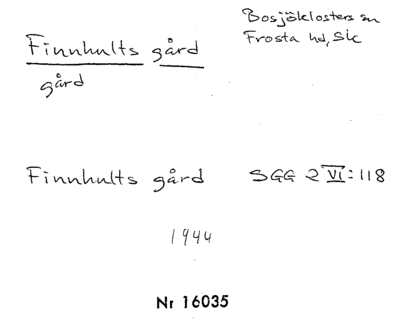 Finnhults gård
gård
Bosjöklosters sn
Frosta hd, Sk
Finnhults gård SGG 2 VI:118
1944
Nr 16035